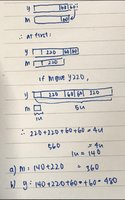 y 60
m 60
∴ at first:
y 220 60 60
m 220
if m gave y 220,
y 220 60 60 220
m
1u 5u
∴ 220+220+60+60 = 4u
560 = 4u
1u = 140
a) m: 140+220 = 360
b) y: 140+220+60+60 = 480